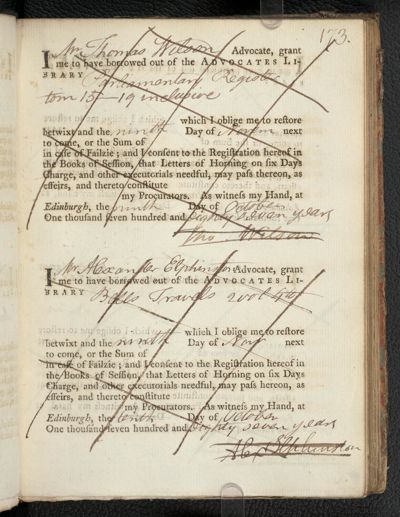 173.
I Mr Thomas Wilson Advocate, grant
me to have borrowed out of the ADVOCATES LI-
BRARY Parliamentary Register
tom 15 - 19 inclusive
which I oblige me to restore
betwixt and the ninth Day of Novem next
to come, or the Sum of
in case of Failzie; and I consent to the Registration hereof in
the Books of Session, that Letters of Horning on six Days
Charge, and other executorials needful, may pass hereon, as
effeirs, and thereto constitute
my Procurators. As witness my Hand, at
Edinburgh, the ninth Day of October
One thousand seven hundred and eighty seven years
Tho Wilson
I Mr Alexander Elphinston Advocate, grant
me to have borrowed out of the ADVOCATES LI-
BRARY Bells Travels 2 vol 4to
which I oblige me to restore
betwixt and the ninth Day of Nov next
to come, or the Sum of
in case of Failzie; and I consent to the Registration hereof in
the Books of Session, that Letters of Horning on six Days
Charge, and other executorials needful, may pass hereon, as
effeirs, and thereto constitute
my Procurators. As witness my Hand, at
Edinburgh, the tenth Day of October
One thousand seven hundred and eighty seven years
Elphinston